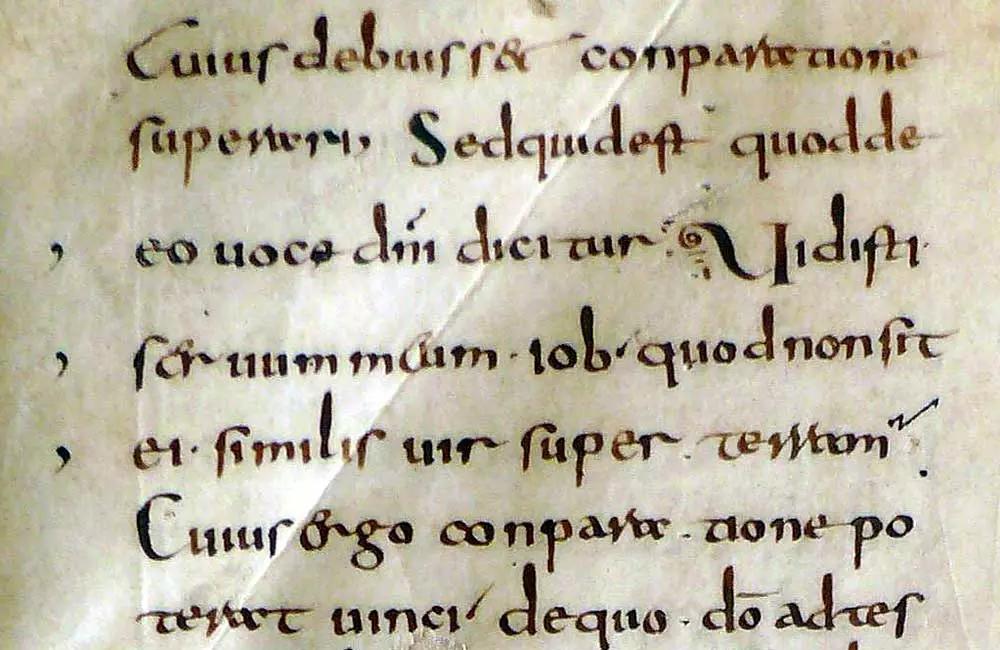 Cuius debuisset conparatione
superari, Sed quid est quod de
eo uoce dn̄i dicitur. Uidisti
seruum meum · iob · quod non sit
ei · similis uir super terram
Cuius ergo conpara tione po
terat uinci de quo · dō adtes